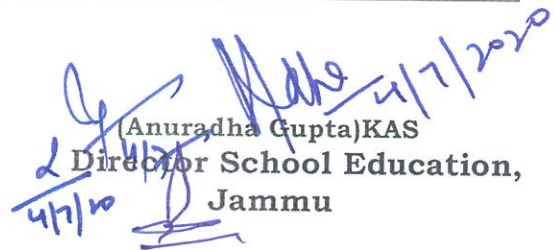 4/7/2020
(Anuradha Gupta)KAS
4/7
Director School Education,
4/7/20
Jammu